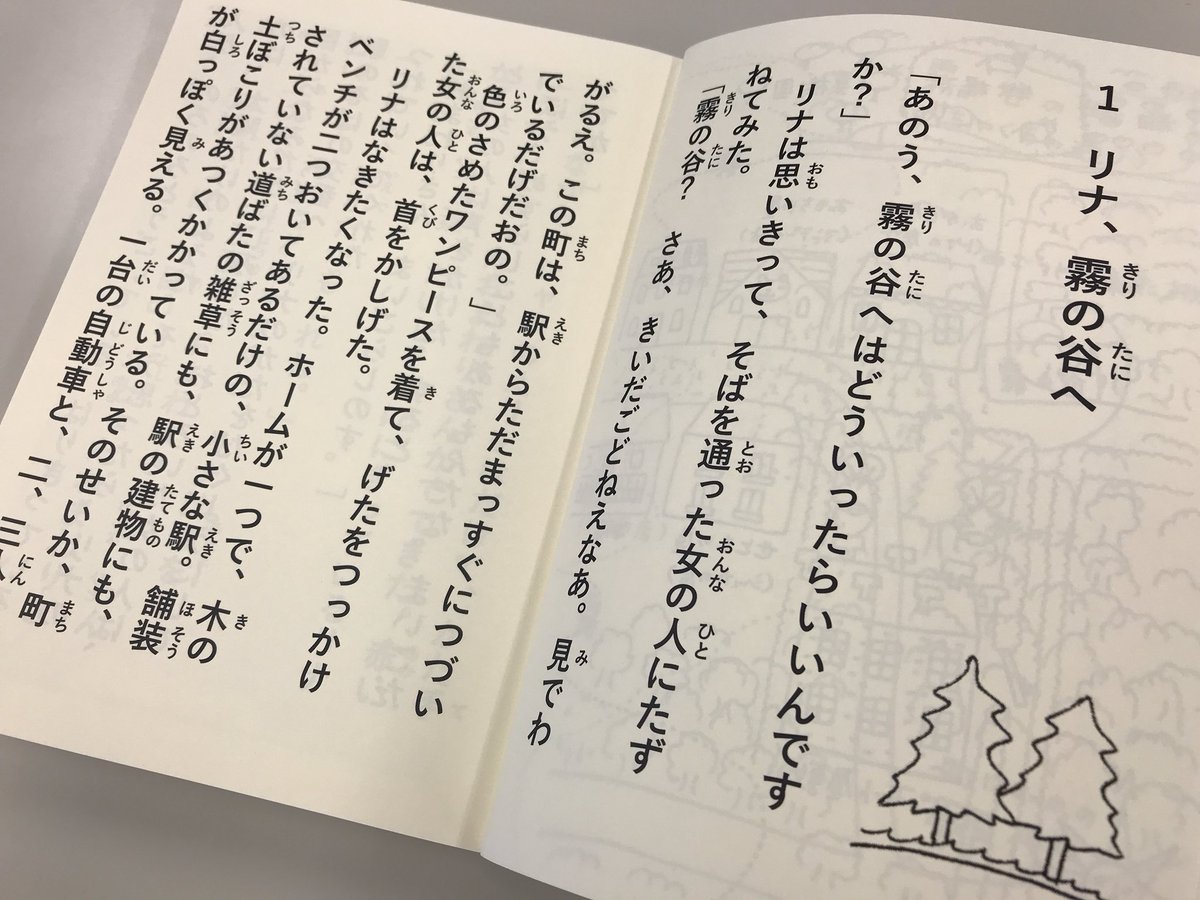 1 リナ、霧の谷へ
「あのう、霧の谷へはどういったらいいんです
か?」
リナは思いきって、そばを通った女の人にたず
ねてみた。
「霧の谷? さぁ、きいだごどねえなぁ。見でわ
がるえ。この町は、駅からただまっすぐにつづい
でいるだげだおの。」
色のさめたワンピースを着て、げたをつっかけ
た女の人は、首をかしげた。
リナはなきたくなった。ホームが一つで、木の
ベンチが二つおいてあるだけの、小さな駅。舗装
されていない道ばたの雑草にも、駅の建物にも、
土ぼこりがあつくかかっている。そのせいか、
が白っぽく見える。一台の自動車と、二、三人町